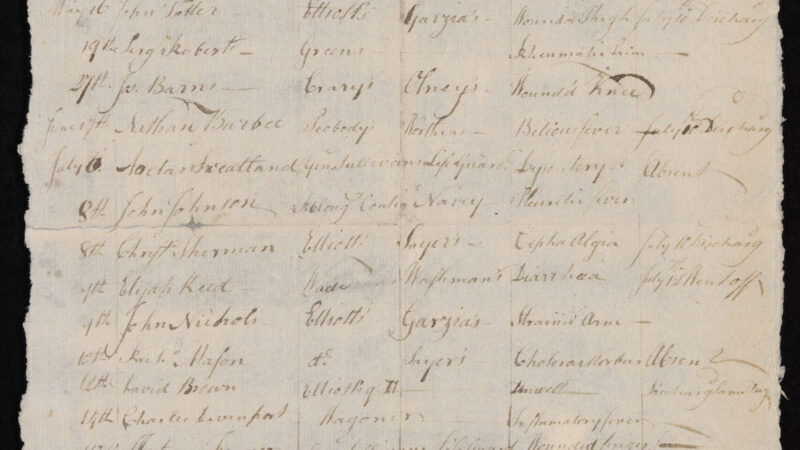 May 16 John Potter Elliott's Garzia's Wound'd Thigh July 10 Discharg
19th Serg't Roberts Greens Rheumatic
27th Jas. Barns Crary's Olney's Wound'd Knee
June 17th Nathan Burbee Peobody's Worthens Bilious fever July 10 Discharg
July 6 Gen. Sullivans Life Guard Dysentery Absent
8th John Johnson Belong Contin'l Navey Pleuretic fever
8th Chryt Sherman Elliotts Sayer's Cepha Algia July 10 Discharg
9th Elijah Reed Wade Diarrhaea July 13 Went off
9th John Nichols Elliotts Garzia's Strain'd Arm
10th Nath'l Mason do Sayer's Cholera Morbus Absent
12th David Brown Elliotts Unwell
14th Charles Devenport Wagoner Inflamatory fever
Wounded finger